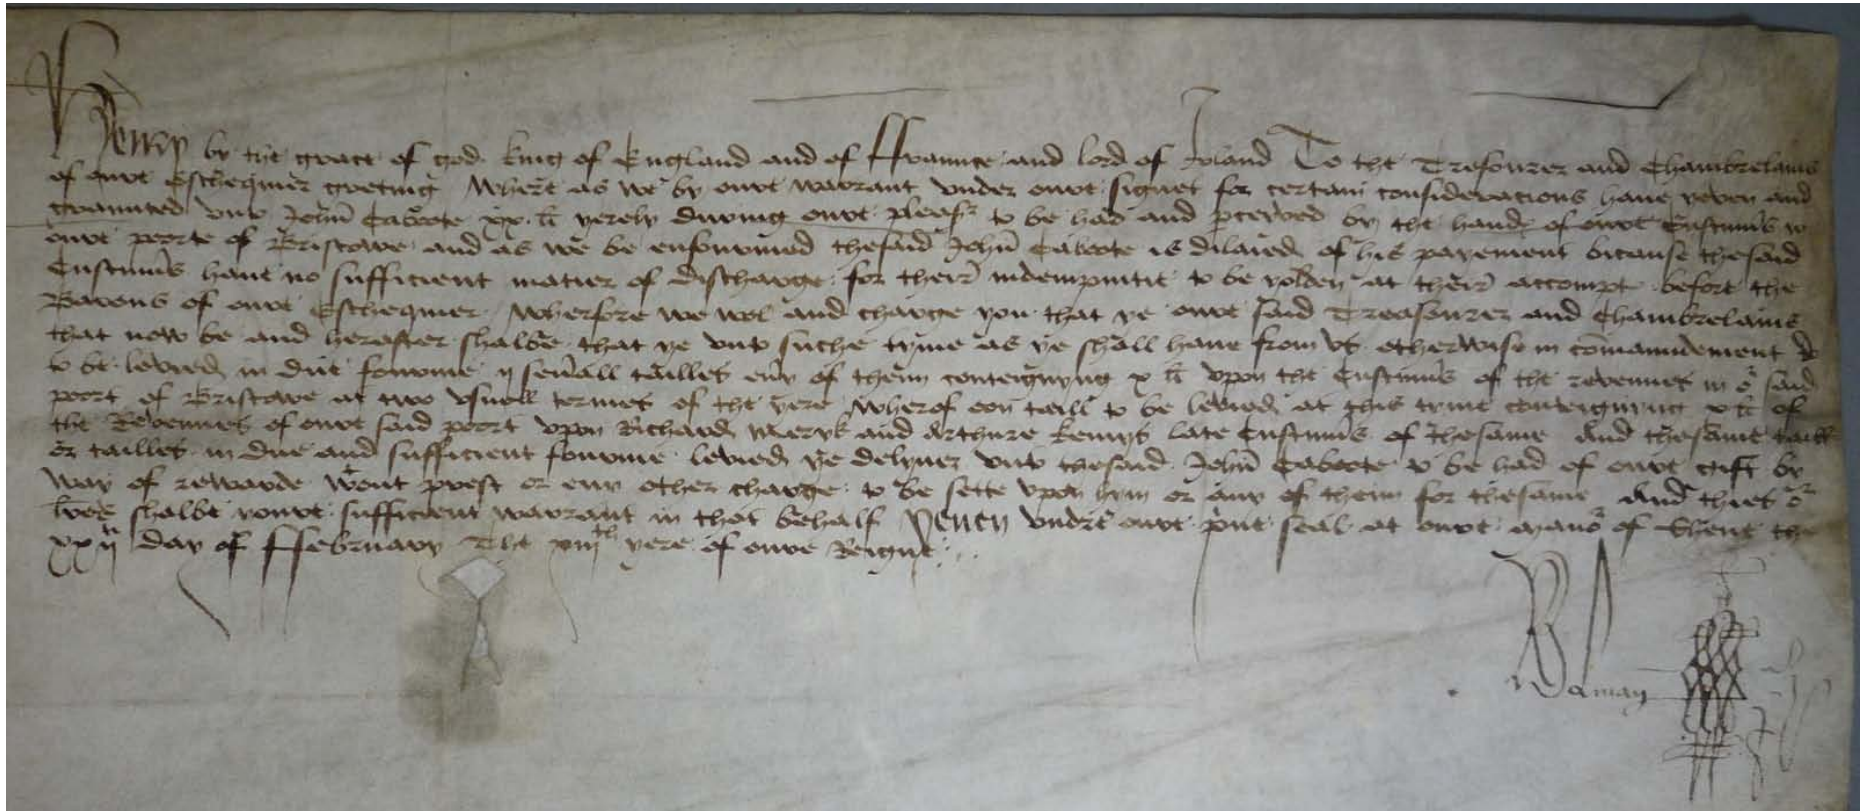 Henry by the grace of god king of England and of ffraunce and lord of Irland To the Tresourer and Chambrelains
of oure Eschequier greting Where as we by oure warrant under oure signet for certain consideracions have yeven and
graunted unto John Caboote xx li yerely during oure pleasr to be had and pceyved by the hands of oure Custums in
oure poorte of Bristowe and as we be enfourmed thesaid John Caboote is dilaied of his payement bicause thesaid
Custums have no sufficient matier of discharge for their indempnitie to be yolden at their accompt before the
Barons of oure Eschequier Wherfore we wol and charge you that ye oure said Treasourer and Chambrelains
that now be and herafter shalbe that ye unto suche tyme as ye shall have from us otherwise in comaundement do
to be levied in due fourme ij sevall tailles evy of theim conteignyng x li upon the Custums of the revenues in or said
poort of Bristowe at two usuell termes of the yere wherof oon taill to be levied at this tyme conteignyng x li of
the Revenues of oure said poort upon Richard Meryk and Arthure Kemys late Custums of thesame And thesame taill
or tailles in due and sufficient fourme levied ye delyver unto thesaid John Caboote to be had of oure gift by
way of rewarde wtout prest or eny other charge to be sette upon hym or any of theim for thesame And thies or
lres shalbe youre sufficient warrant in that behalf Yeven undre oure prive seal at oure manor of Shene the
xxij th day of ffebruary The xiij th yere of oure Reigne